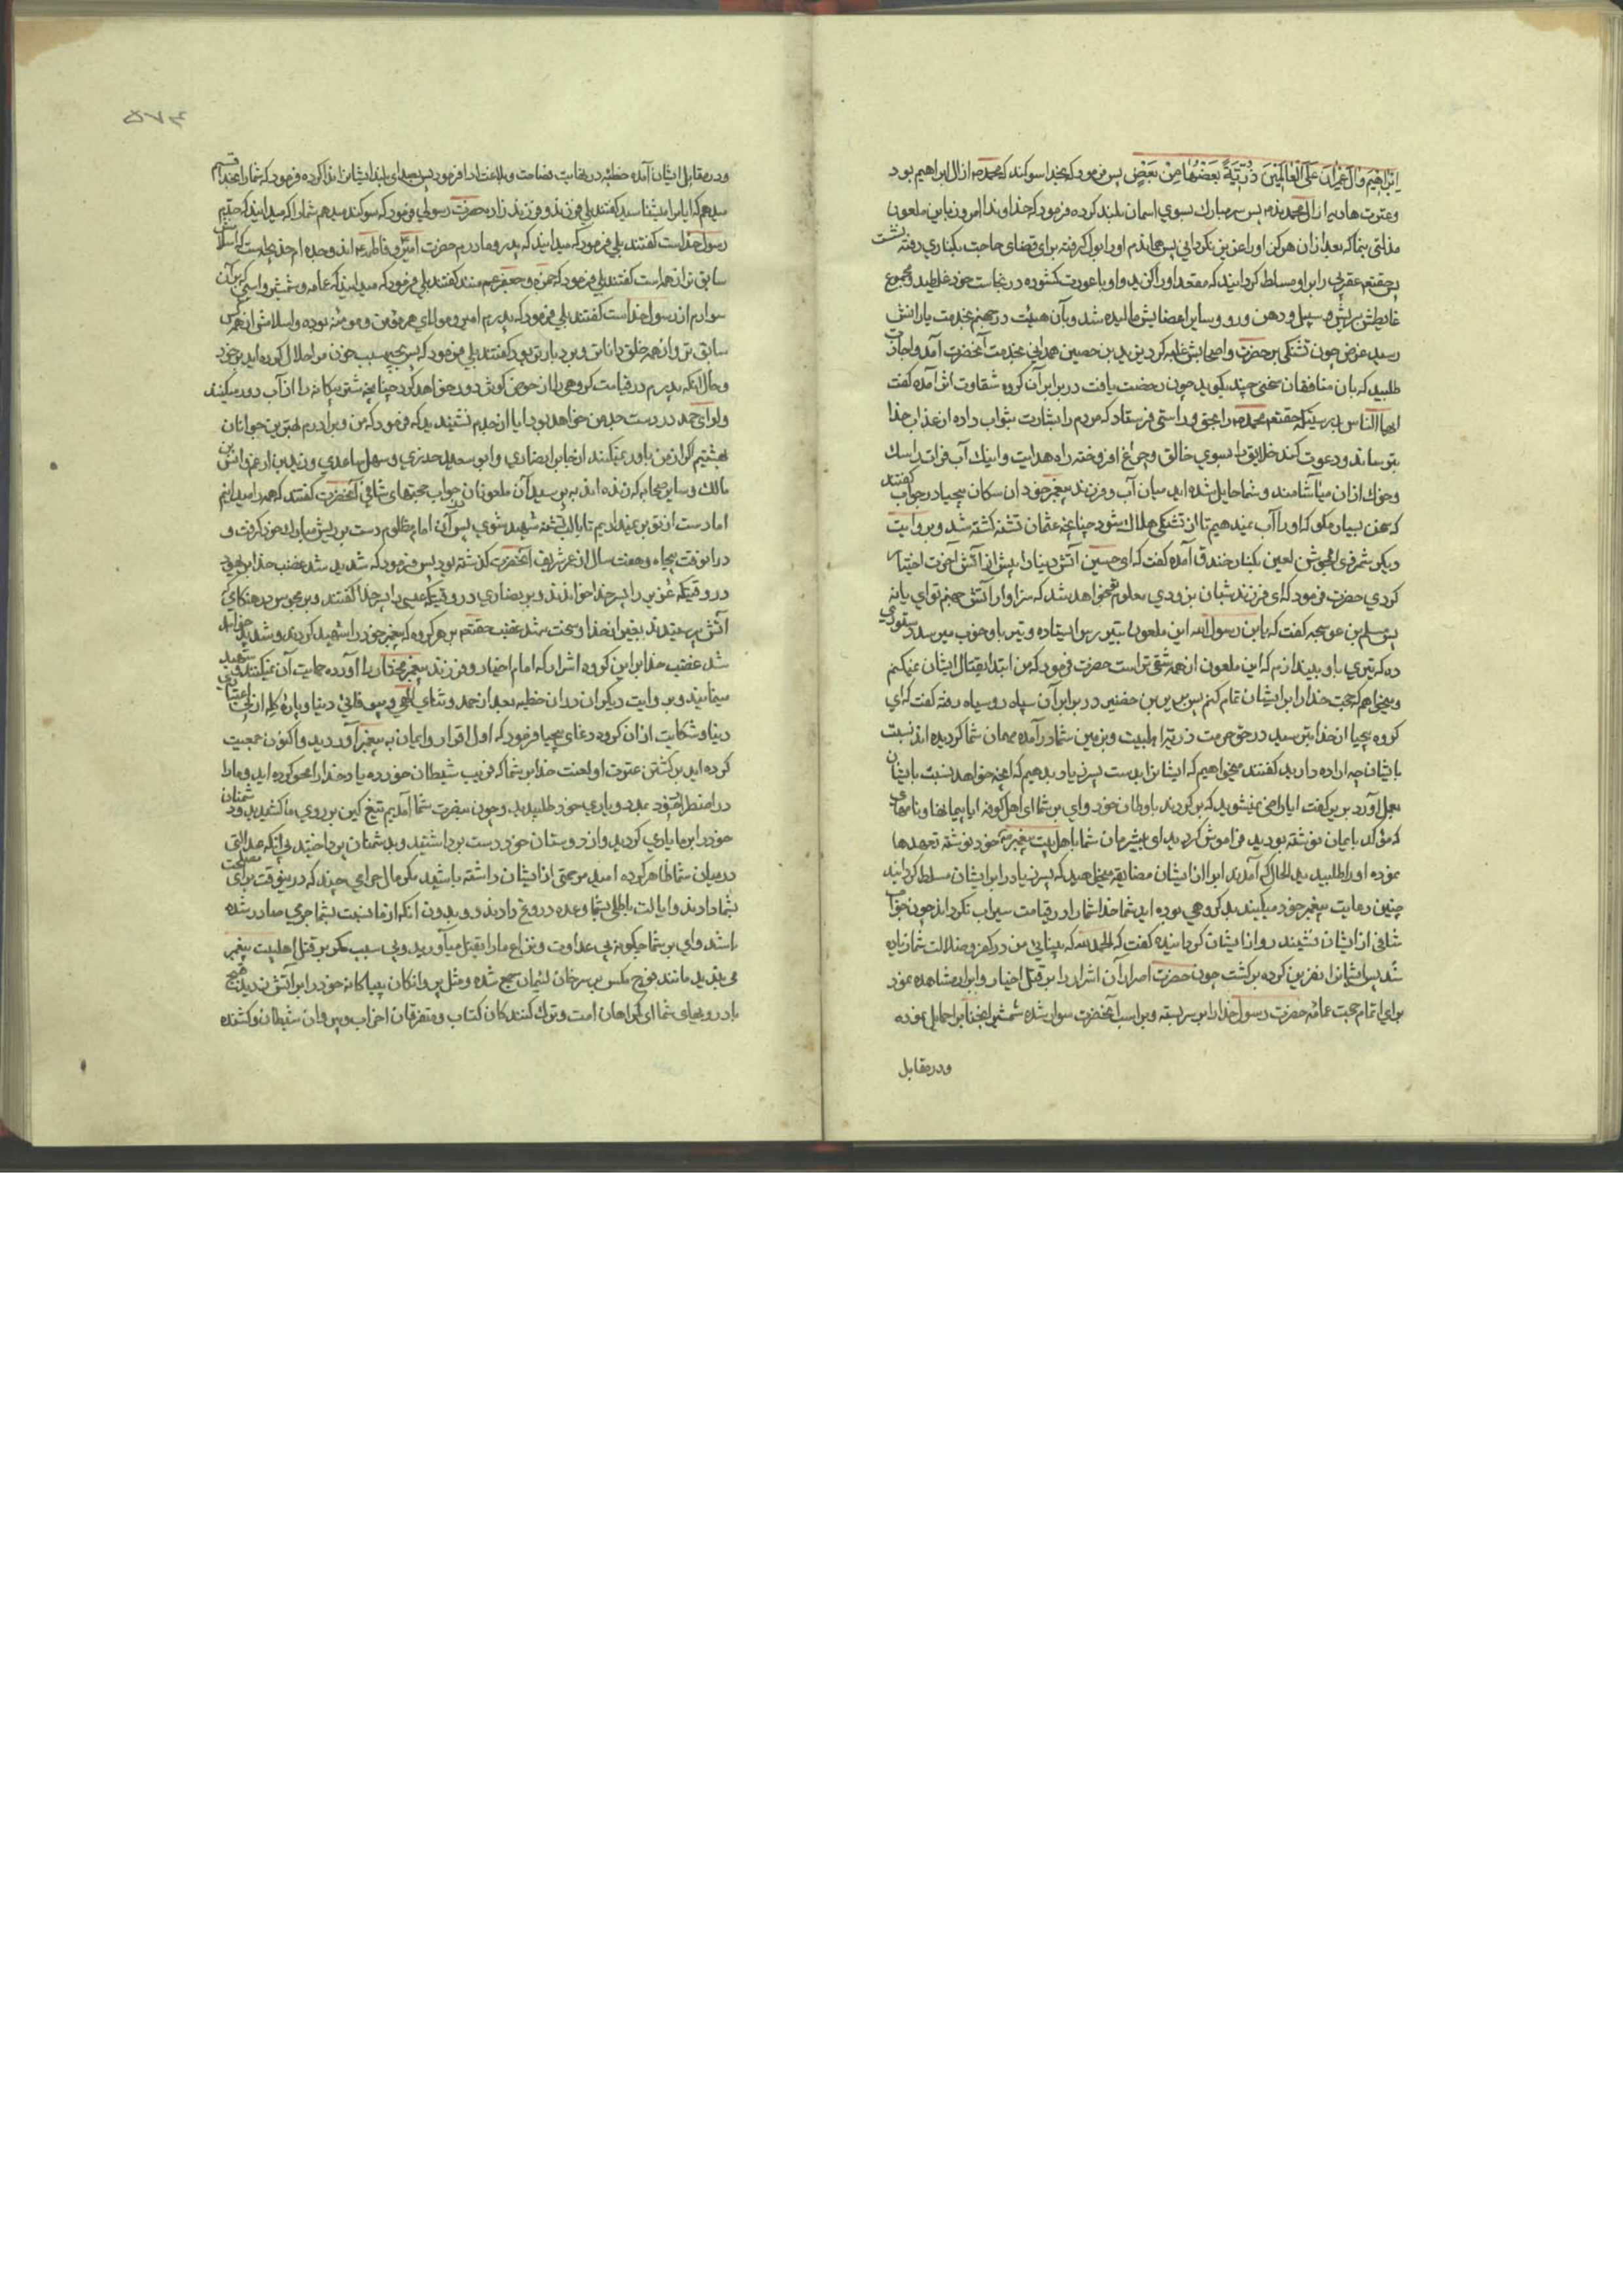 اِبْرٰاهِیمَ وَآلَ عِمْرٰانَ عَلَی الْعٰالَمِینَ ذُرِّیَّةً بَعْضُهٰا مِنْ بَعْضٍ پس فرمود که بخدا سوکند که محمد ص از ال ابراهیم بود
وعترت هادیه از ال محمدند پس سر مبارك بسوی اسمان بلند کرده فرمود که خداوندا امروز باین ملعون
مذلتی بنما که بعد ازان هرکز اورا عزیز نکردانی پس هماندم اورا بول کرفته برای قضای حاجت بکناری رفته نشست
وحقتعم عقربی را براو مسلط کردانید که مقعد اورا کزید واو با عورت کشوده در نجاست خود غلطید ومجموع
غایطش بریش وسبیل ودهن ورو وسایر اعضایش مالیده شد وبآن هیئت در جهنم بخدمت یارانش
رسید عرض چون تشنکی برحضرت واصحابش غلبه کرد یزید بن حصین همدانی بخدمت آنحضرت آمد واجازت
طلبید که بان منافقان سخنی چند بکوید چون رخصت یافت در برابر آن کروه شقاوت اثر آمده کفت
ایها الناس بدرستیکه حقتعم محمد ص را بحق وراستی فرستاد که مردم را بشارت بثواب داده از عذاب خدا
بترساند ودعوت کند خلایق را بسوی خالق وچراغ افروخته راه هدایت واینك آب فراتست که سك
وخوك ازان میآشامند وشما حایل شده اید میان آب وفرزند پیغمبر خود ان سکان بیحیا در جواب کفتند
که سخن بسیار مکو که اورا آب نمیدهیم تا از تشنکی هلاك شود چنانچه عثمان تشنه کشته شد وبروایت
دیکر شمر ذی الجوشن لعین بکنار خندق آمده کفت که ای حسین آتش دنیا را پیش از آتش آخرت اختیار
کردی حضرت فرمود که ای فرزند شبان بزودی معلوم تو خواهد شد که سزاوار آتش جهنم توای یا نه
پس مسلم بن عوسجه کفت که یابن رسول الله این ملعون بتیررس ایستاده وتیر باو خوب میرسد دستوری
ده که تیری باو بیندازم که این ملعون از همه شقی تر است حضرت فرمود که من ابتدا بقتال ایشان نمیکنم
ومیخواهم که حجت خدا را بر ایشان تمام کنم پس بریر بن خضیر در برابر آن سپاه روسیاه رفته کفت که ای
کروه بیحیا از خدا بترسید در حق حرمت ذریه اهلبیت وبزمین شما درآمده مهمان شما کردیده اند نسبت
بایشان چه اراده دارید کفتند میخواهیم که ایشانرا بدست پسر زیاد بدهیم که انچه خواهد نسبت بایشان
بعمل آورد بریر کفت ایا راضی نمیشوید که برکردند باوطان خود وای بر شما ای اهل کوفه ایا پیمانها ونامهای
که مؤکد بایمان نوشته بودید فراموش کردید ای بیشرمان شما باهل بیت پیغمبر خود نوشته تعهدها
نموده اورا طلبیدید الحال که آمدند ابرا از ایشان مضایقه میکنید ومیخواهید که پسر زیاد را بر ایشان مسلط کردانید
چنین رعایت پیغمبر خود میکنید بد کروهی بوده اید شما خدا شما را در قیامت سیراب نکرداند چون جواب
شافی از ایشان نشنید رو از ایشان کردانیده کفت که الحمد لله که بینایی من در کفر وضلالت شما زیاده
شد پس ایشانرا نفرین کرده برکشت چون حضرت اصرار آن اشرار را بر قتل اخیار وابرار مشاهده نمود
برای اتمام حجت عمامه حضرت رسول خدا را بر سر بسته وبر اسب آنحضرت سوار شده شمشیر انجناب را حمایل نموده
ودر مقابل
۵۷۴
ودر مقابل ایشان آمده خطبه در نهایت فصاحت وبلاغت ادا فرمود پس بصدای بلند ایشانرا ندا کرده فرمود که شما را بخدا قسم
میدهم که ایا مرا میشناسید کفتند بلی فرزند وفرزند زاده حضرت رسولی فرمود که سوکند میدهم شما را که میدانید که جدم
رسول خداست کفتند بلی فرمود که میدانید که پدر ومادرم حضرت امیر وفاطمه اند وجده ام خدیجه است که اسلامش
سابق تر از همه است کفتند بلی فرمود که حمزه وجعفر عم منند کفتند بلی فرمود که میدانید که عمامه وشمشیر واسبی که بر آن
سوارم از رسول خداست کفتند بلی فرمود که پدرم امیر ومولای هر مؤمن ومومنه بوده واسلامش از همه کس
سابق تر واز همه خلق داناتر وبردبارتر بود کفتند بلی فرمود که پس بچه سبب خون مرا حلال کرده اید بر خود
وحال آنکه پدرم در قیامت کروهی را از حوض کوثر دور خواهد کرد چنانچه شتر بیکانه را از آب دور میکنند
ولوای حمد در دست جد من خواهد بود ایا از جدم نشنیدید که فرمود که من وبرادرم بهترین جوانان
بهشتیم اکر از من باور نمیکنید از جابر انصاری وابو سعید خدری وسهل ساعدی وزید بن ارقم وانس بن
مالك وسایر صحابه که زنده اند بپرسید آن ملعونان در جواب حجتهای شافی آنحضرت کفتند که همه را میدانیم
اما دست از تو برنمیداریم تا با لب تشنه شهید شوی پس آن امام مظلوم دست بر ریش مبارك خود کرفت و
درانوقت پنجاه وهفت سال از عمر شریف آنحضرت کذشته بود پس فرمود که شدید شد غضب خدا بر یهود
دروقتیکه عزیر را پسر خدا خواندند وبر نصاری دروقتیکه عیسی را پسر خدا کفتند وبر مجوس درهنکامی که
آتش پرستیدند بغیر از خدا وسخت شد غضب حقتعم بر هر کروه که پیغمبر خود را شهید کردند وشدید خواهد
شد غضب خدا بر این کروه اشرار که امام اخیار وفرزند پیغمبر مختار را آورده حمایت آن نمیکنند وشهید
مینمایند وبروایت دیکران دران خطبه بعد از حمد وثنای الهی وبیوفائی دنیا وپاره کله از بی اعتباری
دنیا وشکایت ازان کروه دغای بیحیا فرمود که اول اقرار وایمان به پیغمبر آوردید واکنون جمعیت
کرده اید بر کشتن عترت او لعنت خدا بر شما که فریب شیطان خورده یاد خدا را محو کرده اید ومارا
در اضطرار خود بمدد ویاری خود طلبیدید وچون بنصرت شما آمدیم تیغ کین بر روی ما کشیدید ودشمنان
خود را بر ما یاری کردید واز دوستان خود دست برداشتید وبدشمنان پرداختید بی آنکه عدالتی
درمیان شما ظاهر کرده امید مرحمتی از ایشان داشته باشید مکر مال حرامی چند که درینوقت برای مصلحت
بشما دادند وایالت باطلی بشما وعده دروغ دادند وبدون انکه از ما نسبت بشما جرمی صادر شده
باشد وای بر شما چکونه بی عداوت ونزاع مارا بقتل میآورید وبی سبب کمر بر قتل اهلبیت پیغمبر
می بندید مانند فوج مکس بر سر خوان لئیمان جمع شده ومثل پروانکان بیباکانه خود را بر آتش زدید قبیح
باد رویهای شما ای کمراهان امت وترك کنندکان کتاب ومتفرقان احزاب وپیروان شیطان وکشنده